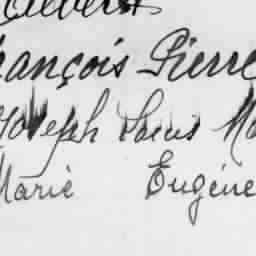 Albert
François Pierre
Joseph Louis Ma
Marie Eugène